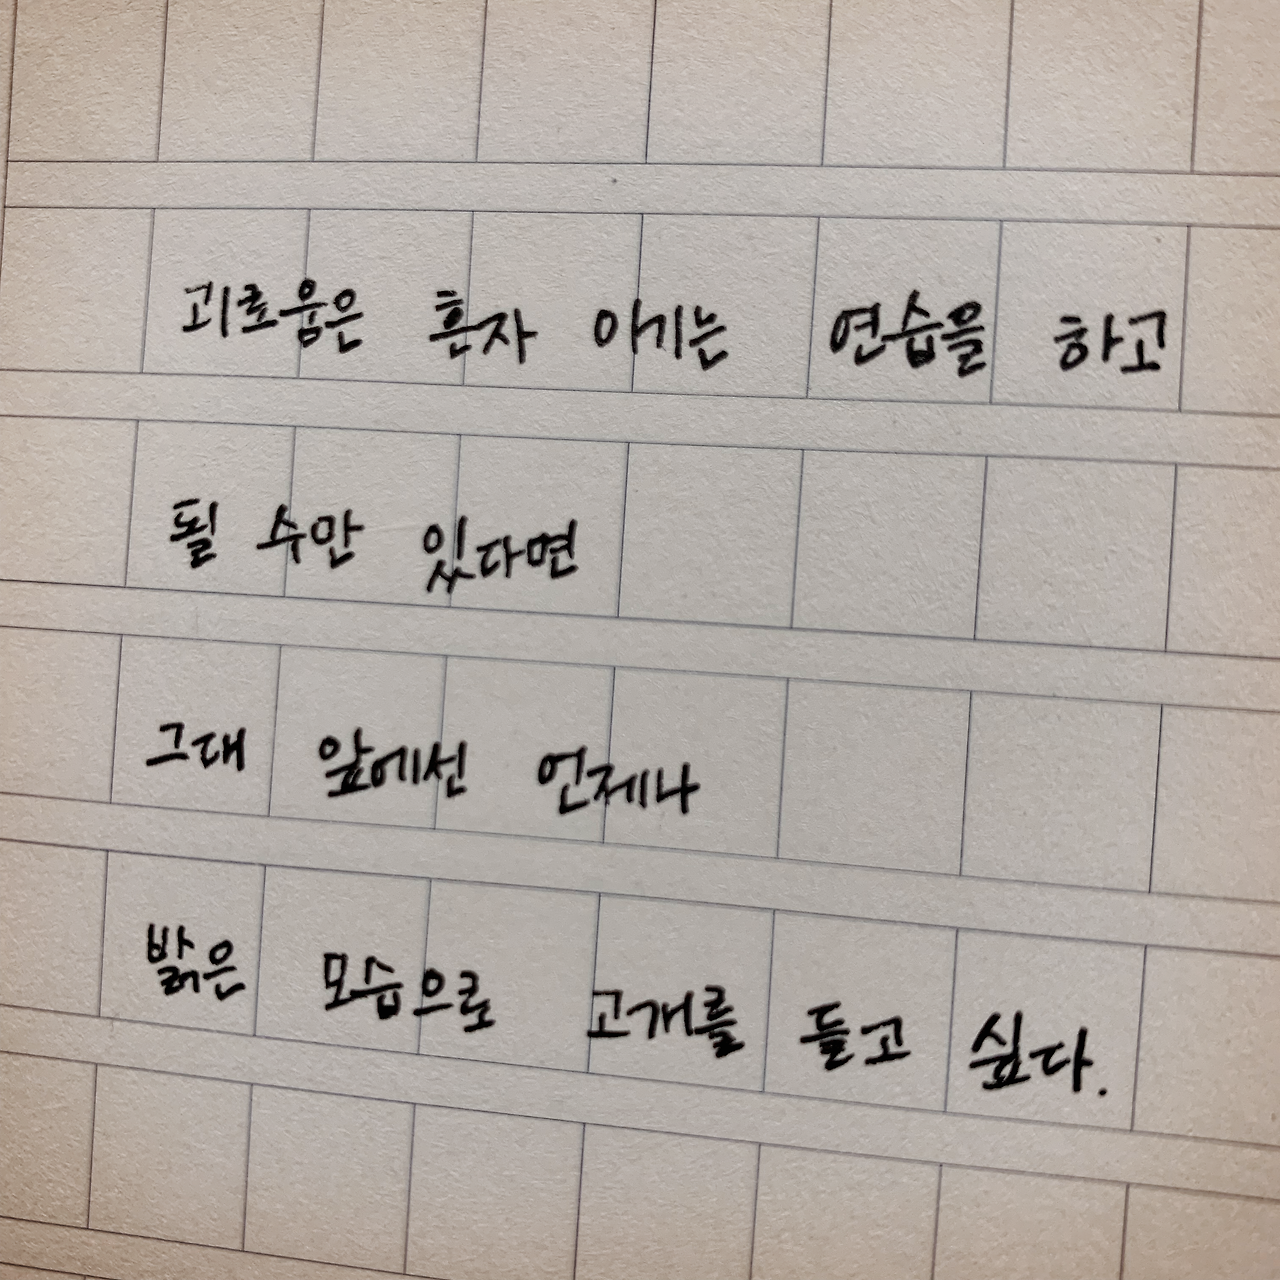 괴로움은 혼자 아기는 연습을 하고
될 수만 있다면
그대 앞에선 언제나
밝은 모습으로 고개를 들고 싶다.